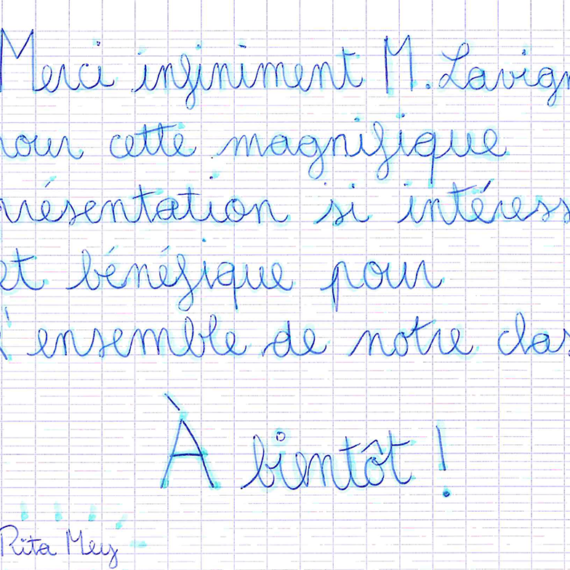 Merci infiniment M. Lavign
our cette magnifique
résentation si intéress
et bénéfique pour
l'ensemble de notre clas
À bientôt !
Rita Mey